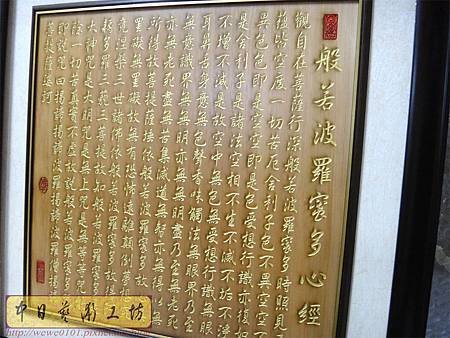 般若波羅蜜多心經
觀自在菩薩行深般若波羅蜜多時照見五
蘊皆空度一切苦厄舍利子色不異空空不
異色色即是空空即是色受想行識亦復如
是舍利子是諸法空相不生不滅不垢不淨
不增不減是故空中無色無受想行識無眼
耳鼻舌身意無色聲香味觸法無眼界乃至
無意識界無無明亦無無明盡乃至無老死
亦無老死盡無苦集滅道無智亦無得以無
所得故菩提薩埵依般若波羅蜜多故心無
罣礙無罣礙故無有恐怖遠離顛倒夢想究
竟涅槃三世諸佛依般若波羅蜜多故得阿
耨多羅三藐三菩提故知般若波羅蜜多是
大神咒是大明咒是無上咒是無等等咒能
除一切苦真實不虛故說般若波羅蜜多咒
即說咒曰揭諦揭諦波羅揭諦波羅僧揭諦
菩提薩婆訶
中日藝術工坊
http://wewe0101.pixnet.net/blog